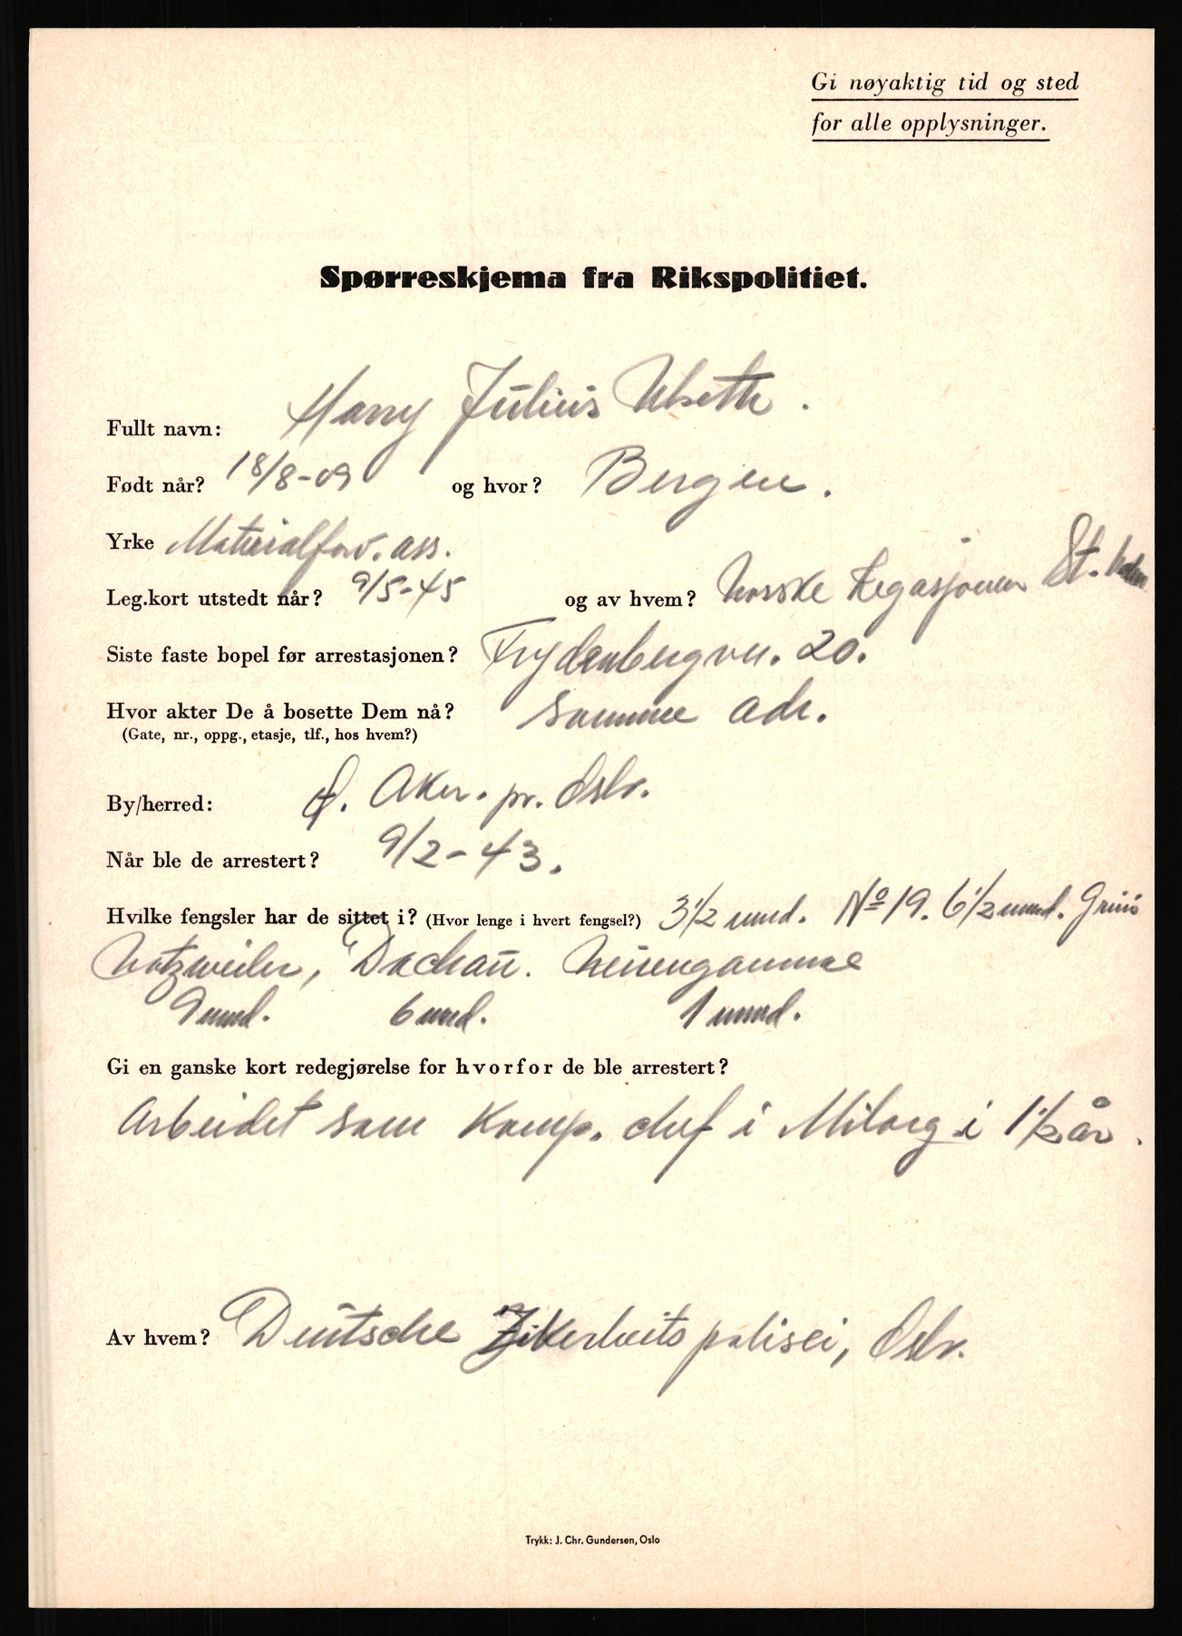 Gi nøyaktig tid og sted
for alle opplysninger.
Spørreskjema fra Rikspolitiet.
Fullt navn: Harry Julius Useth.
Født når? 18/8-09 og hvor? Bergen.
Yrke Materialforv. ass.
Leg.kort utstedt når? 9/5-45 og av hvem? Norske Legasjonen St.
Siste faste bopel før arrestasjonen? Frydenbergvei. 20.
Hvor akter De å bosette Dem nå? Samme adr.
(Gate, nr., oppg., etasje, tlf., hos hvem?)
By/herred: Ø. Aker. pr. Oslo.
Når ble de arrestert? 9/2-43.
Hvilke fengsler har de sittet i? (Hvor lenge i hvert fengsel?) 3 1/2 mnd. No 19. 6 1/2 mnd. Grini
Natzweiler, Dachau. Neuengamme
9 mnd. 6 mnd. 1 mnd.
Gi en ganske kort redegjørelse for hvorfor de ble arrestert?
Arbeidet som Komp. chef i Milorg i 1 1/2 år.
Av hvem? Deutsche Zikerheits polisei, Oslo.
Trykk: J. Chr. Gundersen, Oslo